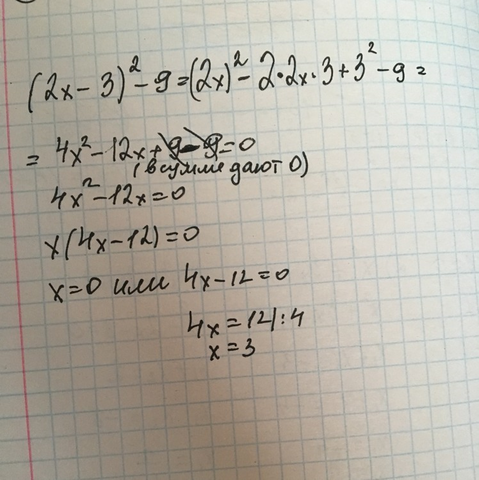 (2x - 3)² - 9 = (2x)² - 2·2x·3 + 3² - 9 =
= 4x² - 12x + 9 - 9 = 0
(в сумме дают 0)
4x² - 12x = 0
x(4x - 12) = 0
x = 0 или 4x - 12 = 0
4x = 12 | : 4
x = 3